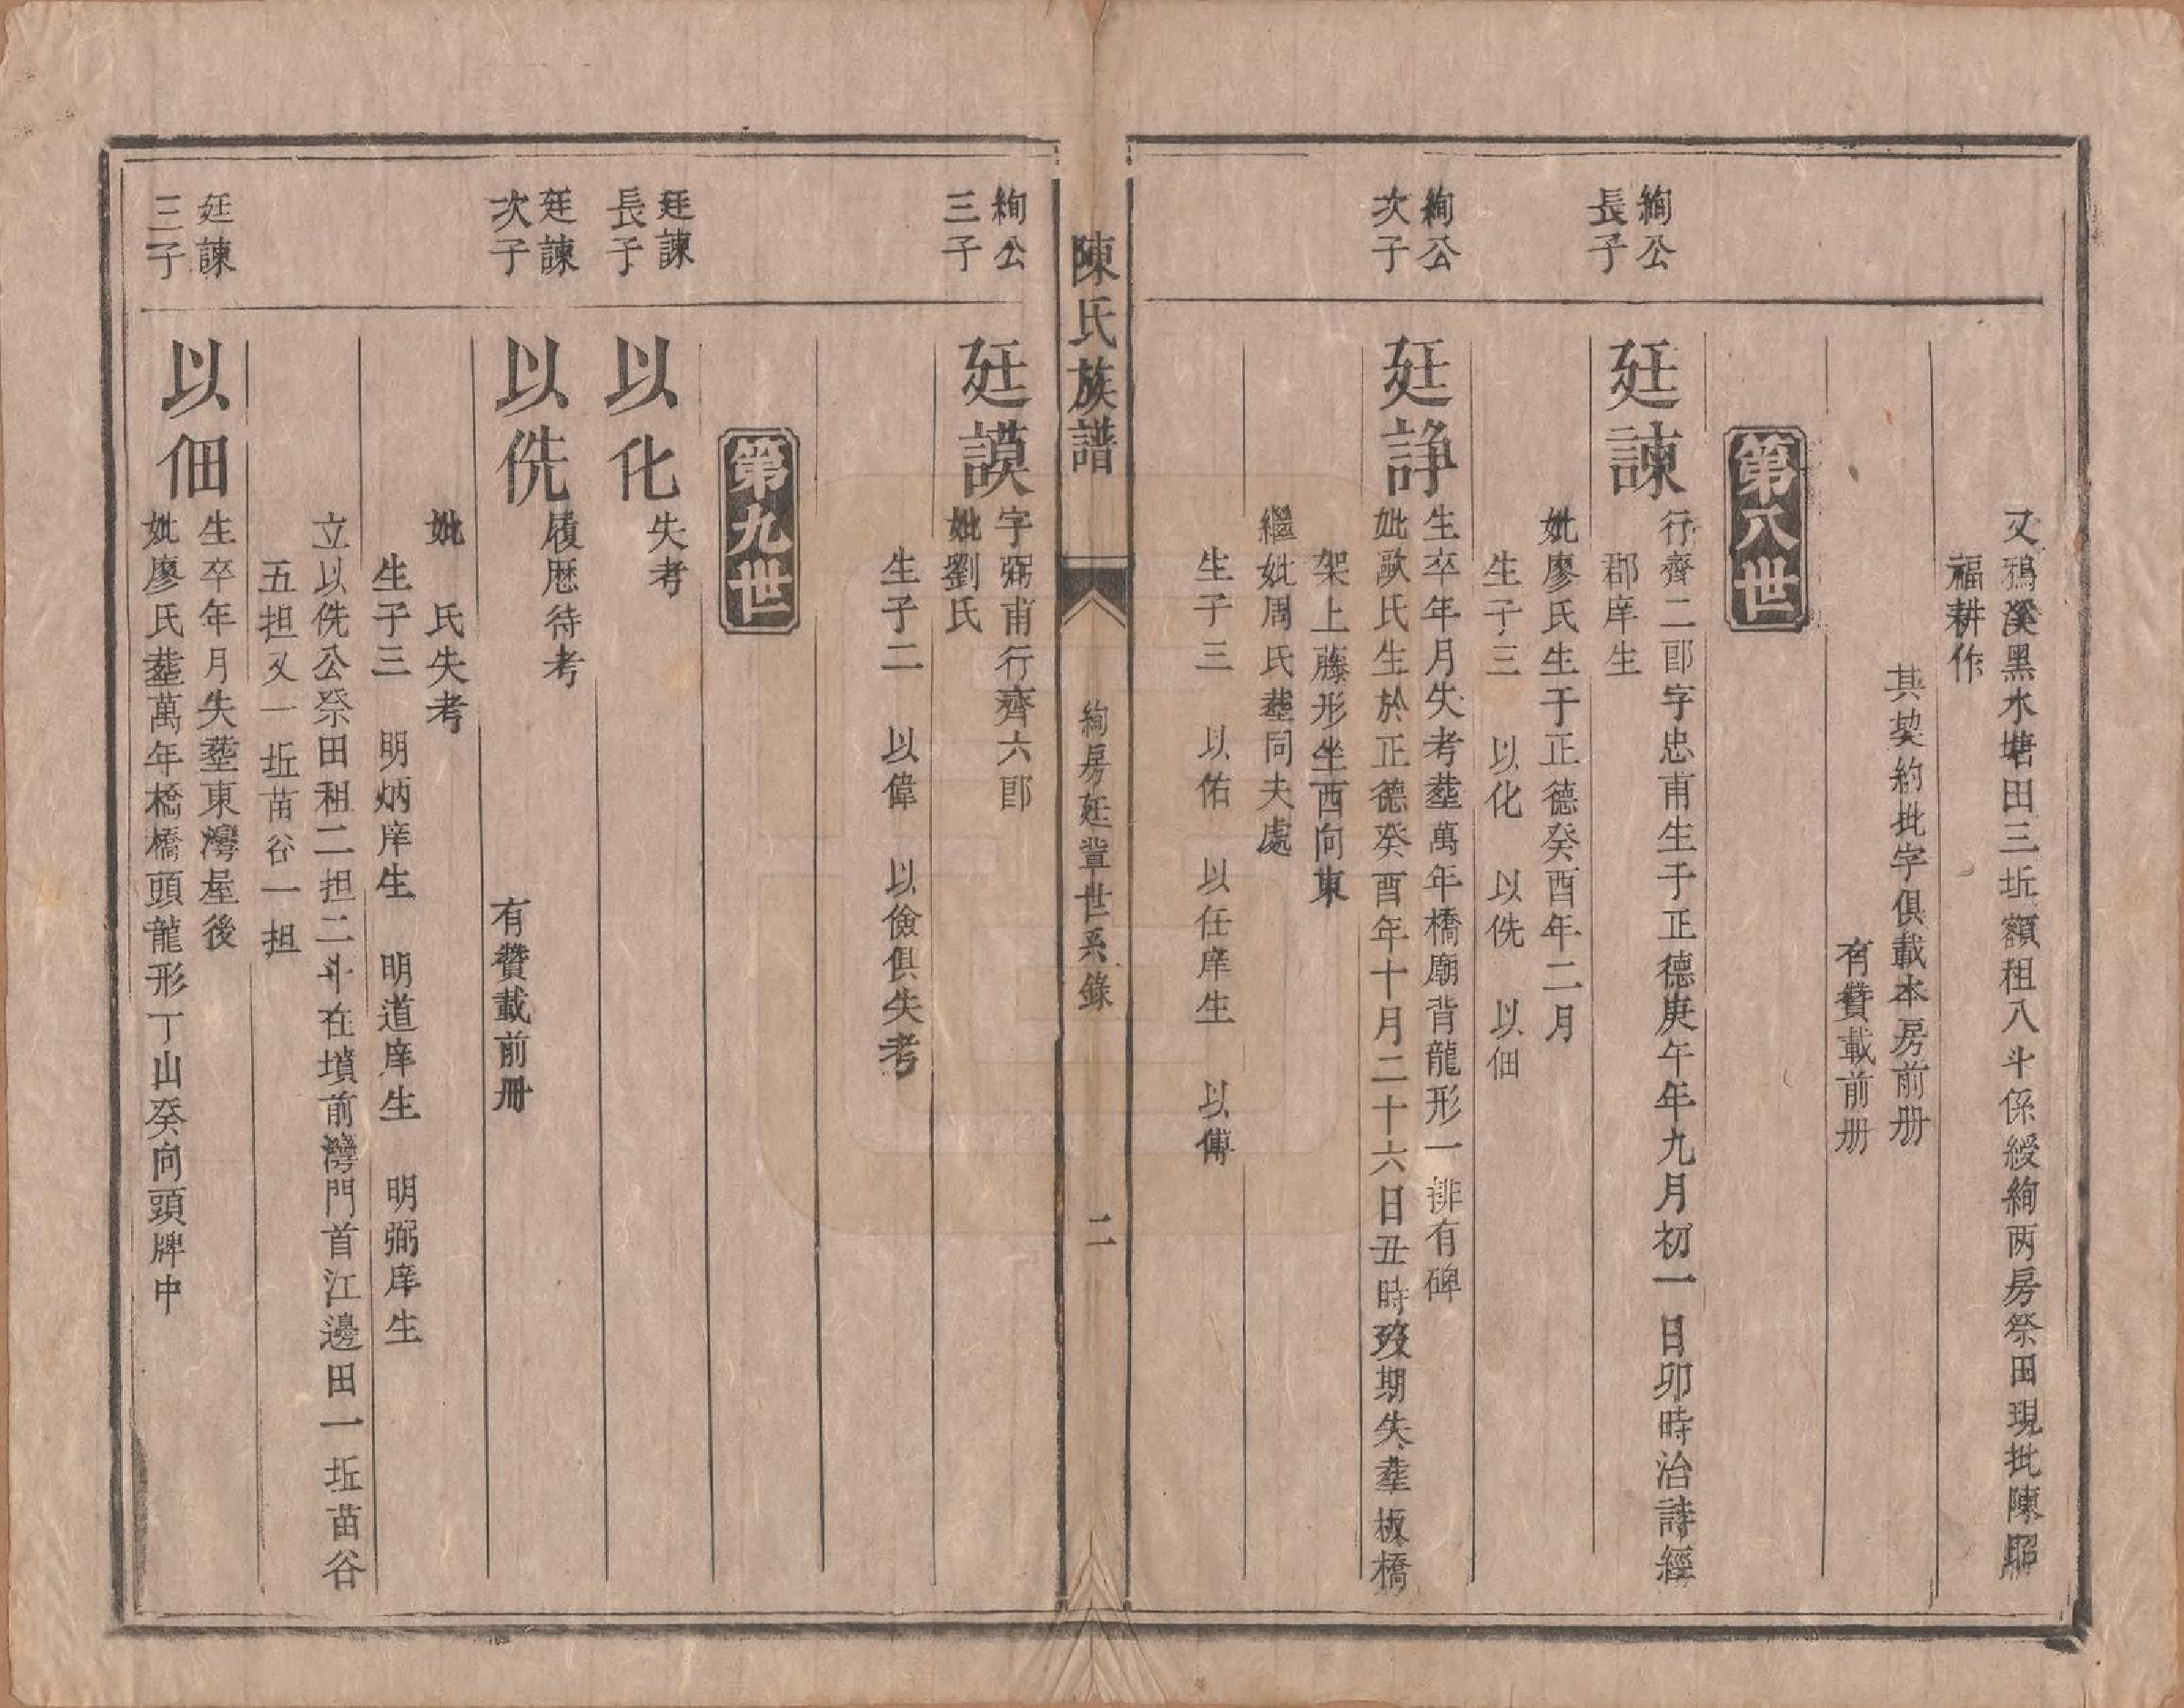 又鴉溪黑水塘田三坵額租八斗係綬絢两房祭田現批陳昭
福耕作
其契約批字俱載本房前册
有贊載前册
第八世
絢公
長子
廷諫
行齊二郎字忠甫生于正德庚午年九月初一日卯時治詩經
郡庠生
妣廖氏生于正德癸酉年二月
生子三 以化 以侁 以佃
絢公
次子
廷諍
生卒年月失考塟萬年橋廟背龍形一排有碑
妣歐氏生於正德癸酉年十月二十六日丑時歿期失塟板橋
架上藤形坐西向東
繼妣周氏塟同夫處
生子三 以佑 以任庠生 以傅
陳氏族譜
絢房廷軰世系錄
二
絢公
三子
廷謨
字弼甫行齊六郎
妣劉氏
生子二 以偉 以儉俱失考
第九世
廷諫
長子
以化
失考
廷諫
次子
以侁
履歷待考
有贊載前册
妣 氏失考
生子三 明炳庠生 明道庠生 明弼庠生
立以侁公祭田租二担二斗在墳前灣門首江邊田一坵苗谷
五担又一坵苗谷一担
廷諫
三子
以佃
生卒年月失塟東灣屋後
妣廖氏塟萬年橋橋頭龍形丁山癸向頭牌中